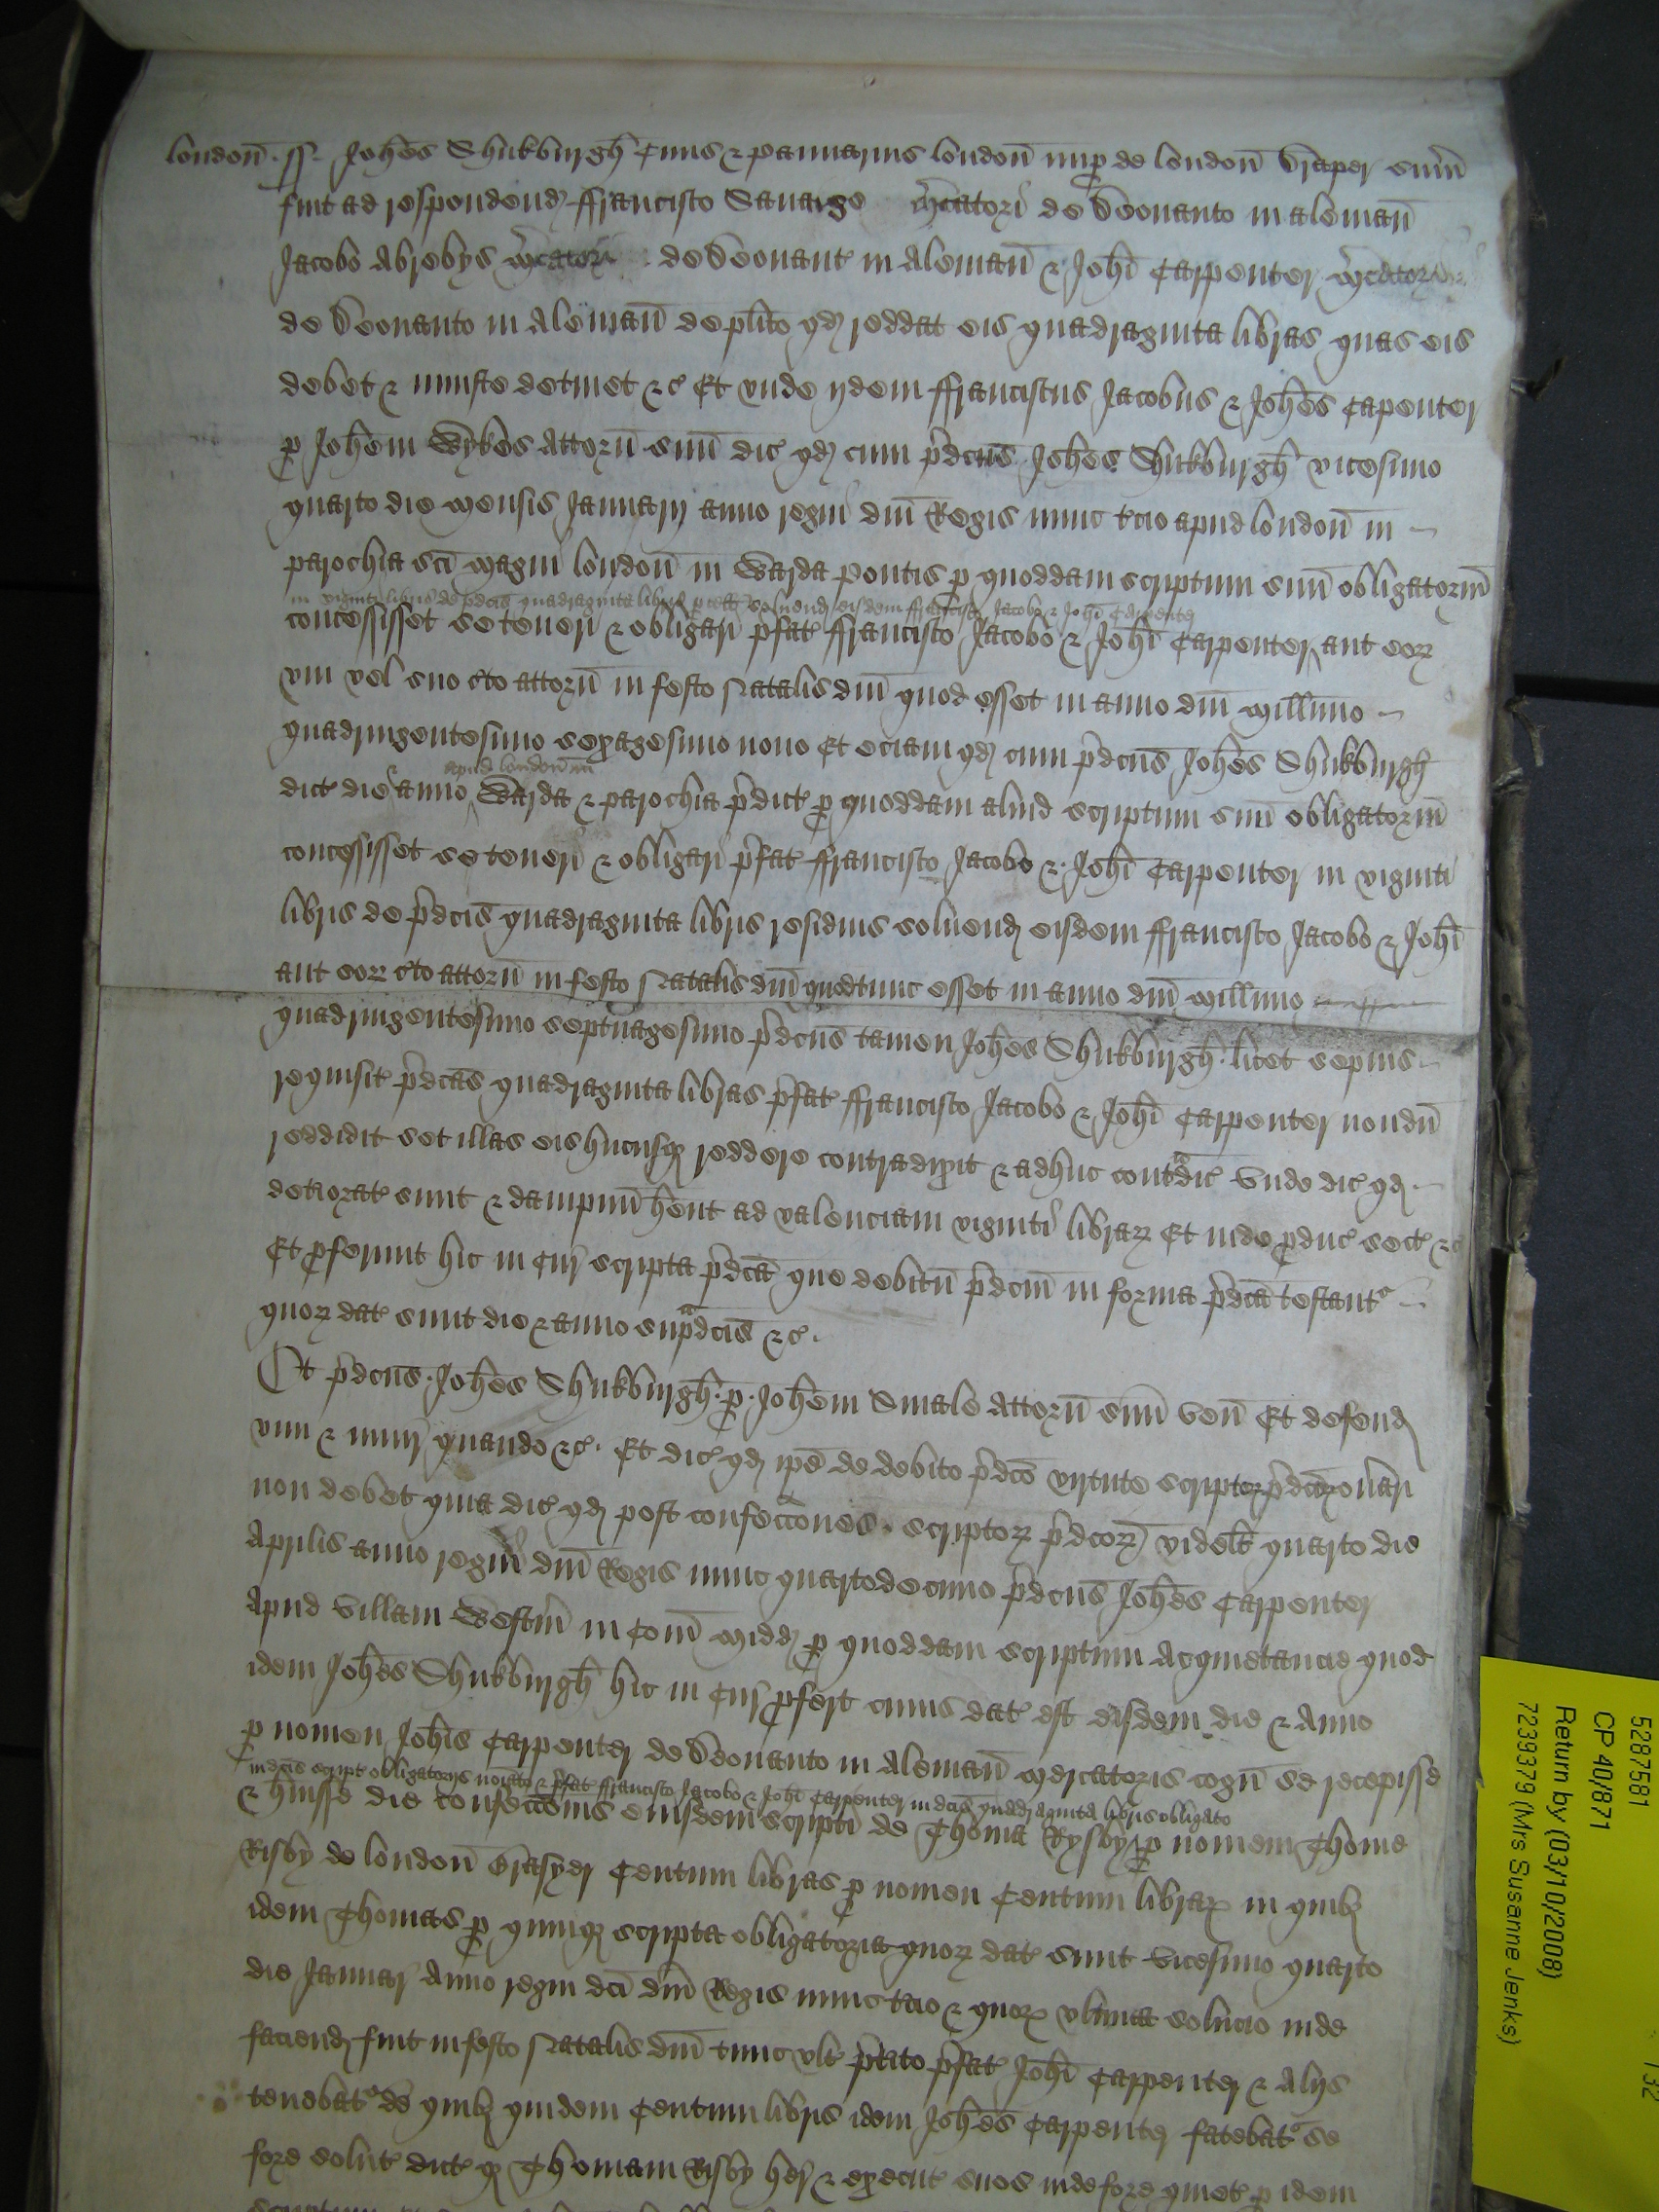 londoñ ss Joħes Shukburgħ Ciuis & pannarius londoñ nup de londoñ Draper sum̄
fuit ad respondend ffrancisco Sauage m̄catori de Deonanto in alemañ
Jacobo Abrebys m̄catori de Deonant in Alemañ & Joħi Carpenter m̄catori
de Deonanto in Alemañ de plito qd reddat eis quadraginta libras quas eis
debet & iniuste detinet &c Et vnde ijdem ffranciscus Jacobus & Joħes Capenter
p Joħem Wykes Attorñ suū dic qd cum p̄dcūs Joħes Shukburgħ vicesimo
quarto die mensis Januarij anno regni dn̄i Regis nunc tcio apud londoñ in
parochia sc̄i Magni londoñ in Warda Pontis p quoddam scriptum suū obligatoriū
in viginti libris de p̄dcīs quadraginta libris soluend eisdem ffrancisco Jacobo & Joħi Carpenter
concessisset se teneri & obligari p̄fat ffrancisco Jacobo & Joħi Carpenter aut eoꝝ
vni vel suo c̄to attorñ in festo Natalis dn̄i quod esset in anno dn̄i Millimo
quadringentesimo sexagesimo nono Et eciam qd cum p̄dcūs Joħes Shukburgħ
apud londoñ in
dict die & anno Warda & parochia p̄dict p quoddam aliud scriptum suū obligatoriū
concessisset se teneri & obligari p̄fat ffrancisco Jacobo & Joħi Carpenter in viginti
libris de p̄dcīs quadraginta libris residuis soluend eisdem ffrancisco Jacobo & Joħi
aut eoꝝ c̄to attorñ in festo Natalis dn̄i quod tunc esset in anno dn̄i Millimo
quadringentesimo septuagesimo p̄dcūs tamen Joħes Shukburgħ licet sepius
requisit p̄dcās quadraginta libras p̄fat ffrancisco Jacobo & Joħi Carpenter nondū
reddidit set illas eis hucusq reddere contradixit & adhuc contadic Vnde dic qd
deteriorat sunt & dampnū ħent ad valenciam viginti libraꝝ Et inde pduc sect &c
Et pferunt hic in Cur scripta p̄dcā que debitū p̄dcm̄ in forma p̄dcā testant
quoꝝ dat sunt die & anno sup̄dcīs &c
Et p̄dcūs Joħes Shukburgħ p Joħem Smale Attorñ suū veñ Et defend
vim & iniur quando &c Et dic qd ip̄e de debito p̄dcō virtute scriptoꝝ p̄dcoꝝ on̄ari
non debet quia dic qd post confeccōnes scriptoꝝ p̄dcoꝝ videlt quarto die
Aprilis anno regni dn̄i Regis nunc quartodecimo p̄dcūs Joħes Carpenter
apud villam Westm̄ in Com̄ Midd p quoddam scriptum Acquietancie quod
idem Joħes Shukburgħ hic in Cur pfert cuius dat est eisdem die & Anno
p nomen Joħis Carpenter de Deonanto in Alemañ Mercatoris cogñ se recepisse
in dcīs script obligatorijs noīato & p̄fat ffrancisco Jacobo & Joħi Carpenter in dcīs quadraginta libris obligato
& ħuisse die confeccōnis eiusdem scripti de Thoma Rysby p nomen Thome
Risby de londoñ Grasyer Centum libras p nomen Centum libraꝝ in quibꝫ
idem Thomas p quinqꝫ scripta obligatoria quoꝝ dat sunt vicesimo quarto
die Januar Anno regni dcī dn̄i Regis nunc tcio & quoꝝ vltima solucio inde
faciend fuit in festo Natalis dn̄i tunc vlt p̄tito p̄fat Joħi Carpenter & Alijs
tenebat de quibꝫ quidem Centum libris idem Joħes Carpenter fatebat se
fore solut dict qꝫ Thomam Risby her & execut suos inde fore quiet p idem
5287581
CP 40/871
Return by (03/10/2008)
7239379 (Mrs Susanne Jenks)
132